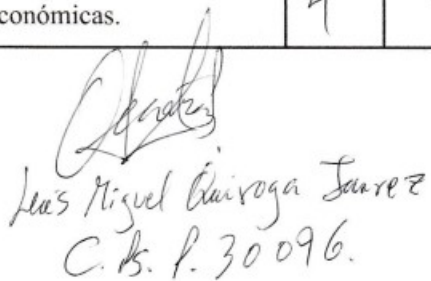 conómicas.
4
Luis Miguel Quiroga Juarez
C. Ps. P. 30096.